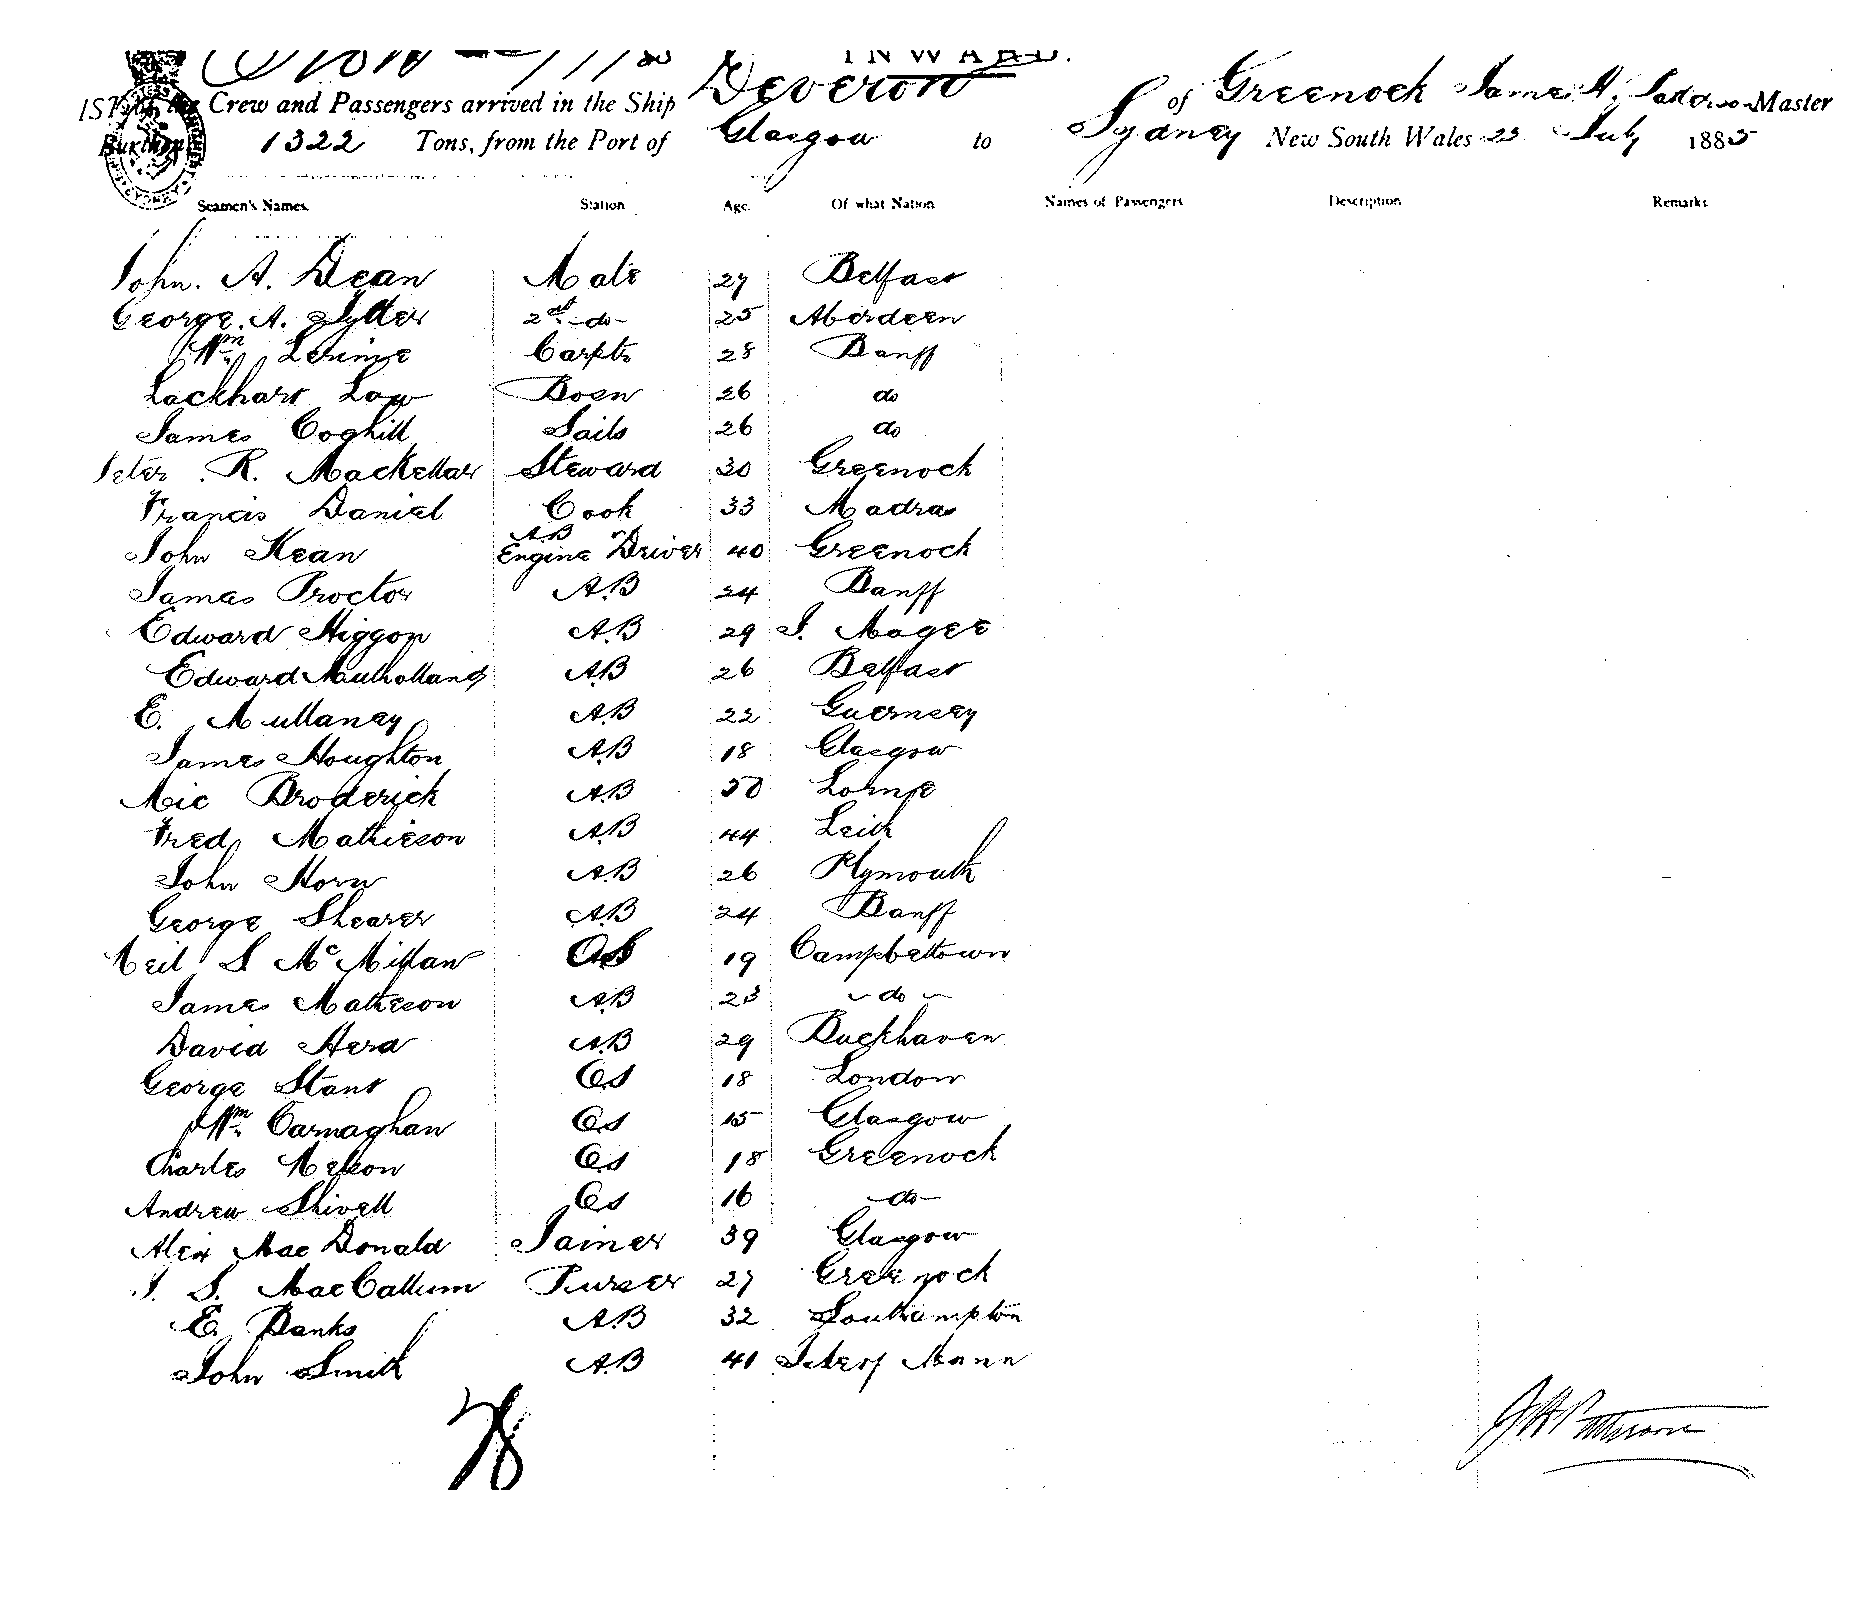 INWARD.
LIST of the Crew and Passengers arrived in the Ship Deveron of Greenock James H. Master
Burthen 1322 Tons, from the Port of Glasgow to Sydney New South Wales 23 July 1885
Seamen's Names. Station Age. Of what Nation Names of Passengers Description Remarks
John. A. Dean Mate 27 Belfast
George. A. 2nd -do- 25 Aberdeen
Wm Carptr 28 Banff
Lockhart Law Bosn 26 do
James Coghill Sails 26 do
Peter R. MacKellar Steward 30 Greenock
Francis Daniel Cook 33 Madras
John Kean AB Engine Driver 40 Greenock
James Proctor A.B 24 Banff
Edward Higgon A.B 29 I. Magee
Edward Mulholland A.B 26 Belfast
E. Mullaney A.B 22 Guernsey
James Houghton A.B 18 Glasgow
Mic Broderick A.B 50 Lorne
Fred Mathieson A.B 44 Leith
John Horn A.B 26 Plymouth
George Shearer A.B 24 Banff
Neil S McMillan OS 19 Campbeltown
James Matheson A.B 23 - do -
David Herd A.B 29 Buckhaven
George Stant OS 18 London
Wm Carnaghan OS 15 Glasgow
Charles Nelson OS 18 Greenock
Andrew Shivell OS 16 -do-
Alex MacDonald Joiner 39 Glasgow
J. S. MacCallum Purser 27 Greenock
E. Banks A.B 32 Southampton
John Smith A.B 41 Isle of Mann
28